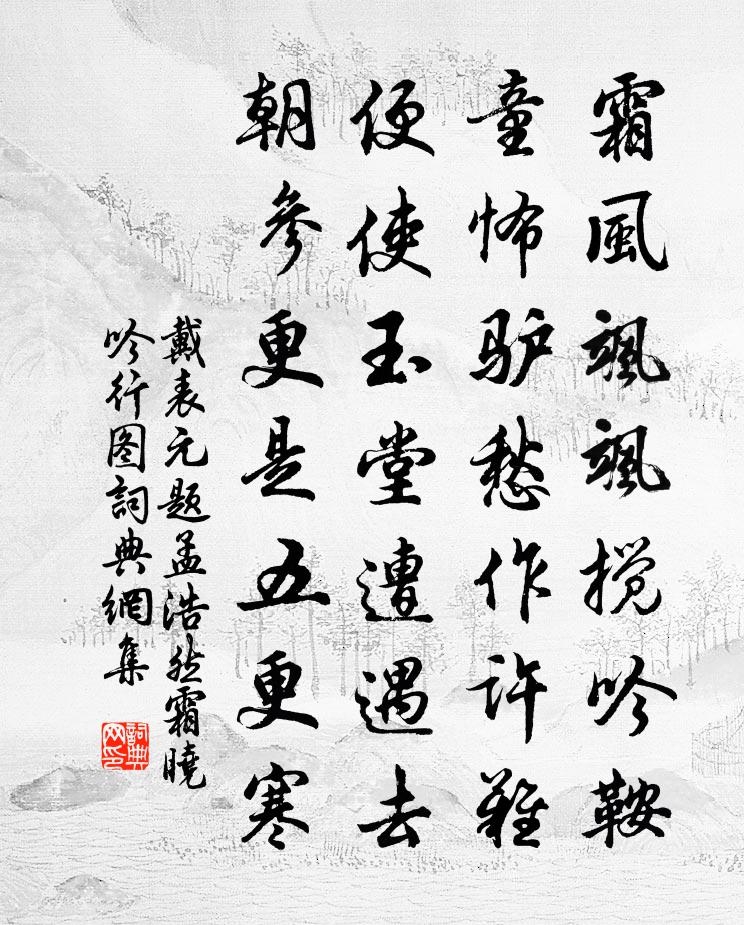 霜風颯颯攪吟鞍
童怖驴愁作許難
便使玉堂遭遇去
朝參更是五更寒
戴表元题孟浩然霜曉
吟行图詞典網集
詞典
网印